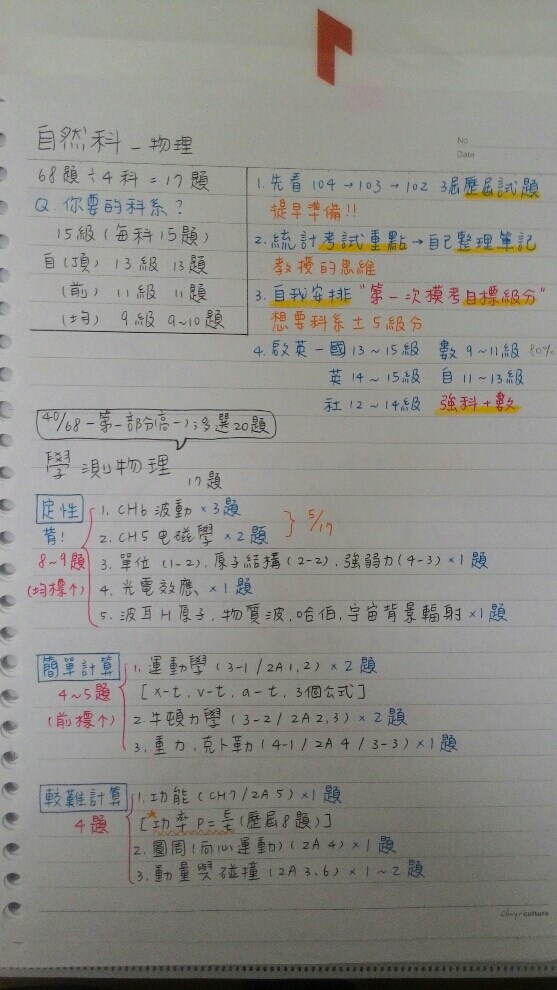 No.
Date
自然科-物理
68題÷4科=17題
Q.你要的科系?
15級(每科15題)
自(頂)13級 13題
(前)11級 11題
(均)9級 9~10題
1.先看104→103→102 3屆歷屆試題
提早準備!!
2.統計考試重點→自己整理筆記
教授的思維
3.自我安排"第一次模考目標級分"
想要科系±5級分
4.啟英-國13~15級 數9~11級 80%
英14~15級 自11~13級
社12~14級 強科+數
40/68-第一部分(高一);多選20題
學測物理 17題
定性
背!
8~9題
(均標↑)
1.CH6波動×3題
2.CH5電磁學×2題 } 5/17
3.單位(1-2).原子結構(2-2).強弱力(4-3)×1題
4.光電效應×1題
5.波耳H原子.物質波.哈伯.宇宙背景輻射×1題
簡單計算
4~5題
(前標↑)
1.運動學(3-1/2A1,2)×2題
[x-t,v-t,a-t,3個公式]
2.牛頓力學(3-2/2A2,3)×2題
3.重力.克卜勒(4-1/2A4/3-3)×1題
較難計算
4題
1.功能(CH7/2A5)×1題
[功率P=(歷屆8題)]
2.圓周(向心運動)(2A4)×1題
3.動量與碰撞(2A3,6)×1~2題